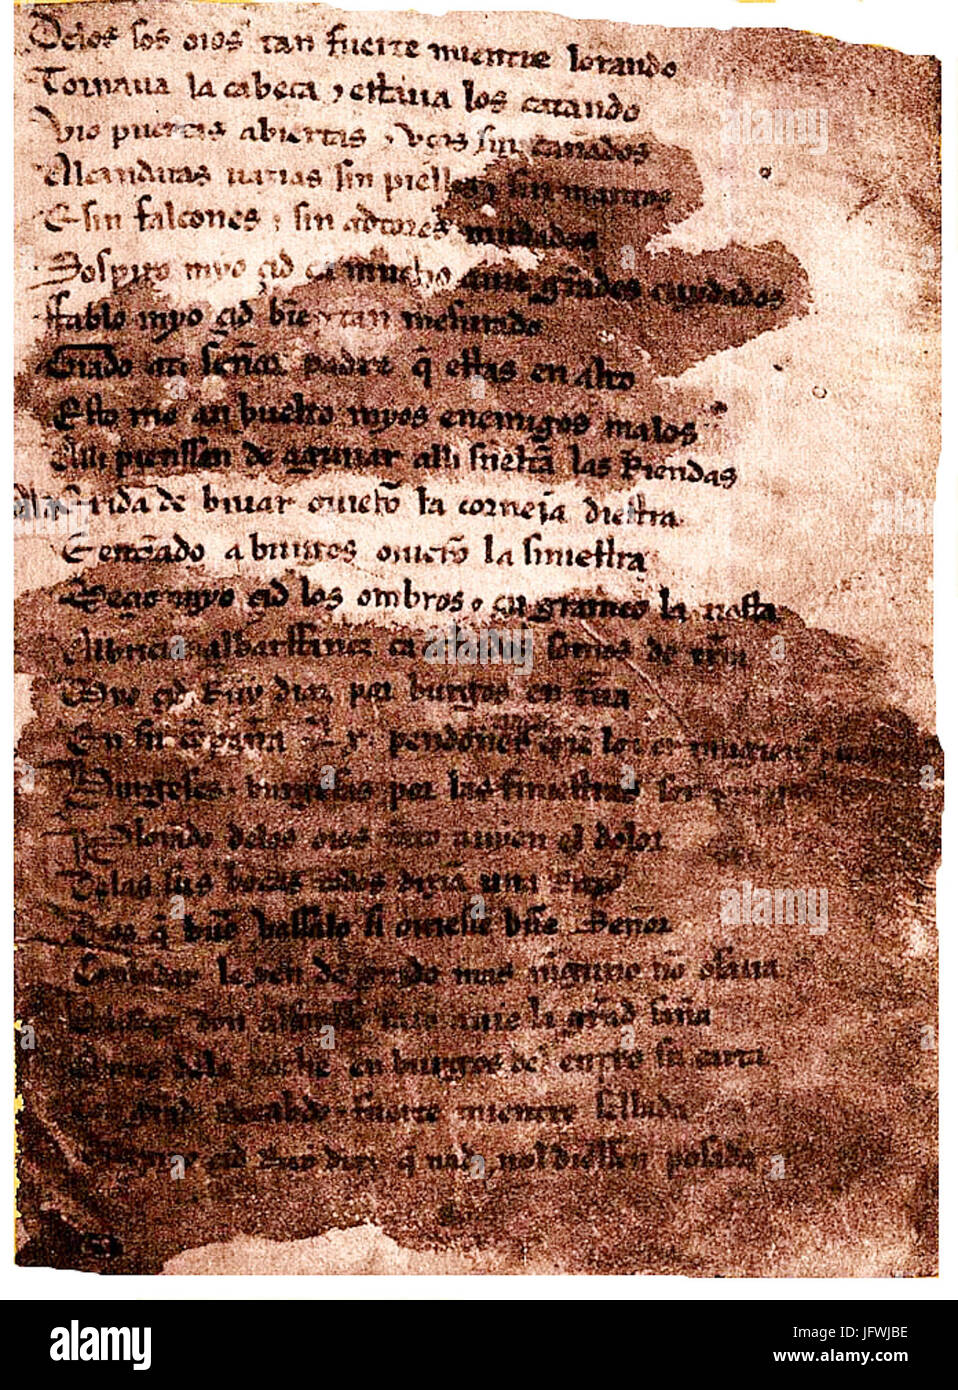 Delos sos oios tan fuerte mientre lorando
Tornaua la cabeça ⁊ estaua los catando
Vio puertas abiertas ⁊ vços sin cañados
Alcandaras uazias sin pielles ⁊ sin mantos
E sin falcones ⁊ sin adtores mudados
Sospiro myo çid ca mucho auie grãdes cuydados
ffablo myo çid bie ⁊ tan mesurado
Grado ati señor padre q̃ estas en alto
Esto me an buelto myos enemigos malos
Alli pienssan de aguiiar alli sueltã las Riendas
ala exida de biuar ouierõ la corneia diestra
E entrãdo a burgos ouierõ la siniestra
Meçio myo çid los ombros ⁊ en grameo la tiesta
Albricia albarffanez ca echados somos de tierra
Myo çid Ruy diaz por burgos en traua
En su cõpaña Lx pendones
Burgeses ⁊ burgesas por las finiestras son
Plorando delos oios tãto auyen el dolor
Delas sus bocas todos diziã una Razo
Dios q̃ buẽ vassalo si ouiesse buẽ Señor
Conbidar le yen de grado mas ninguno nõ osaua
El Rey don alfonsso tãto auie la grãd saña
Antes dela noche en burgos del entro su carta
Con grãd Recabdo ⁊ fuerte mientre sellada
Que a myo çid Ruy diaz q̃ nadi nol diessen posada
alamy
Image ID: JFWJBE
www.alamy.com